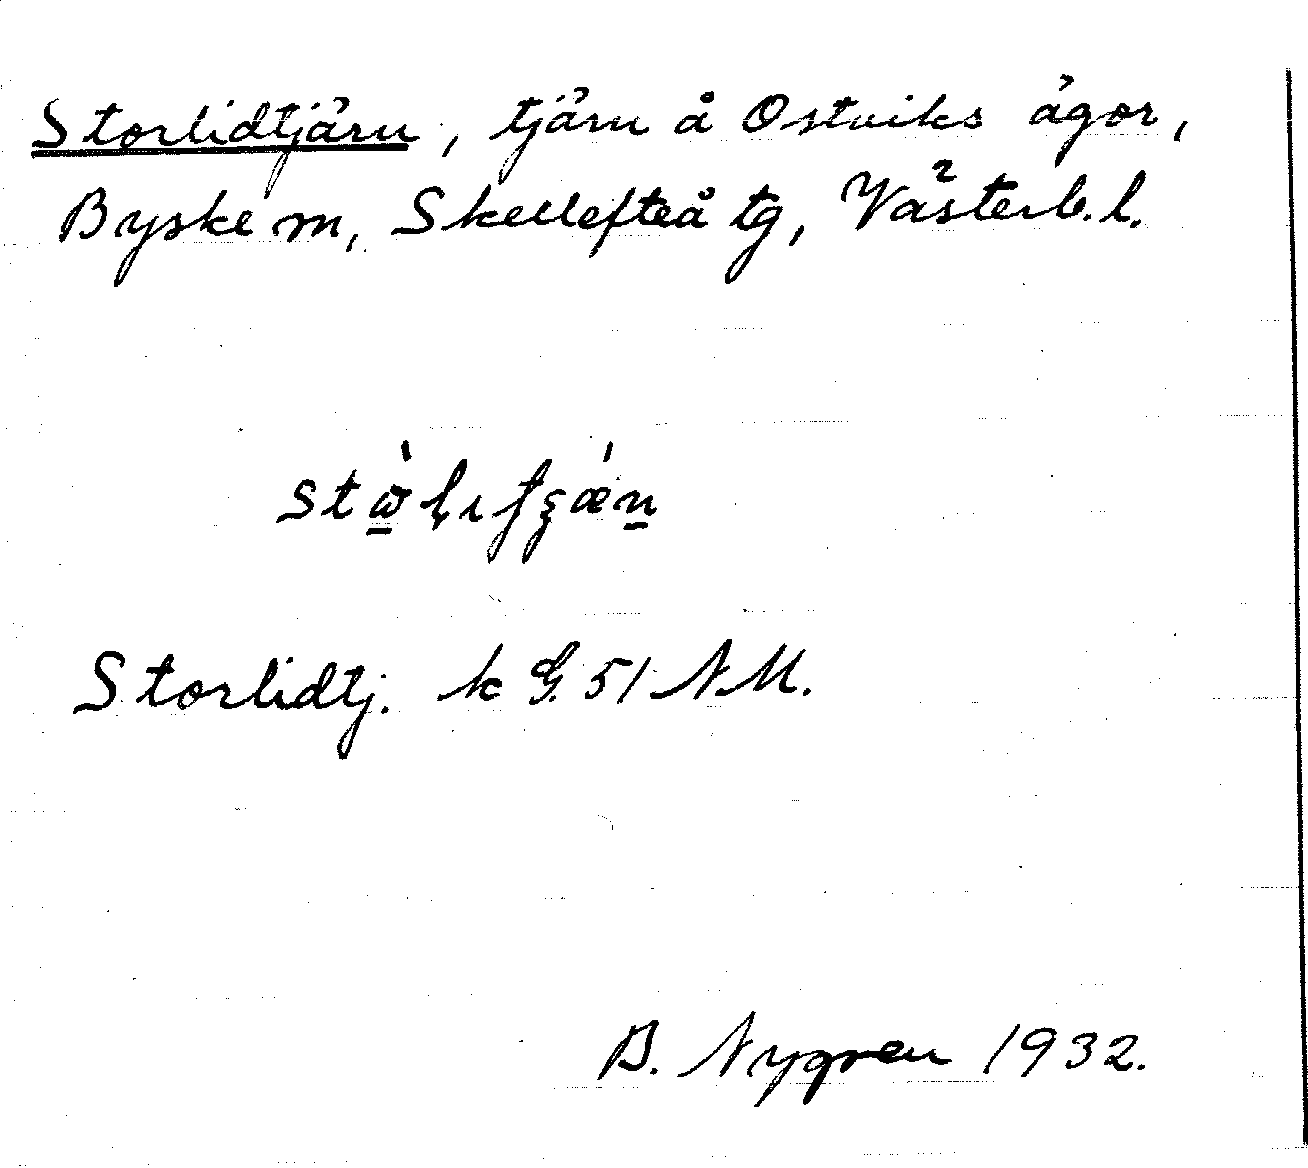 Storlidtjärn, tjärn å Ostviks ägor,
Byske sn, Skellefteå tg, Västerb.l.
Storlidtj. k G. 51 N.M.
B. Nygren 1932.